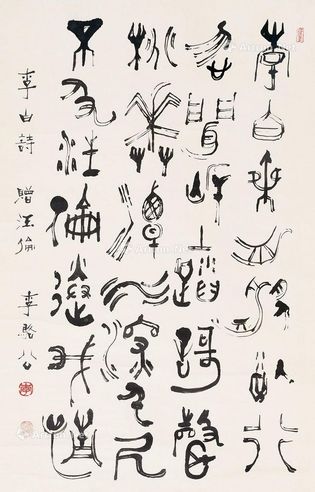 李白乘舟將欲行
忽聞岸上踏謌聲
桃花潭水深千尺
不及汪倫送我情
李白詩 贈汪倫 李駱公